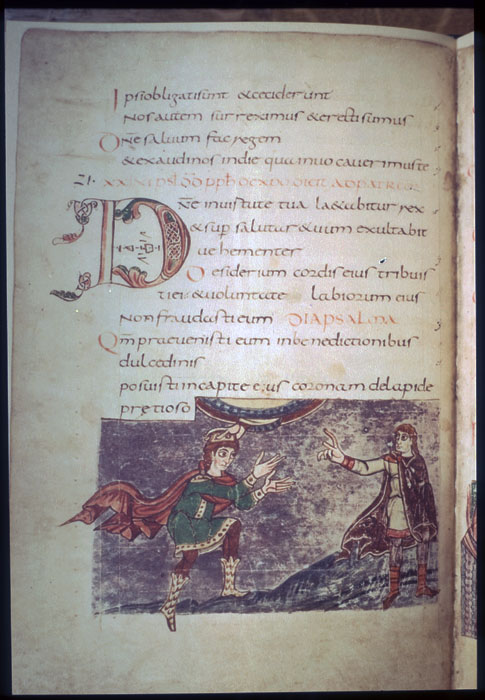 Ipsi obligati sunt & ceciderunt
Nos autem surreximus & erecti sumus
Dn̄e saluum fac regem
& exaudi nos in die qua inuocauerimus te
21. AD PATREM
Dn̄e in uirtute tua lætabitur rex
& sup salutare tuum exultabit
uehementer
Desiderium cordis eius tribuis
ti ei & uoluntate labiorum eius
Non fraudasti eum DIAPSALMA
Qm̄ praeuenisti eum in benedictionibus
dulcedinis
posuisti in capite eius coronam de lapide
prętioso